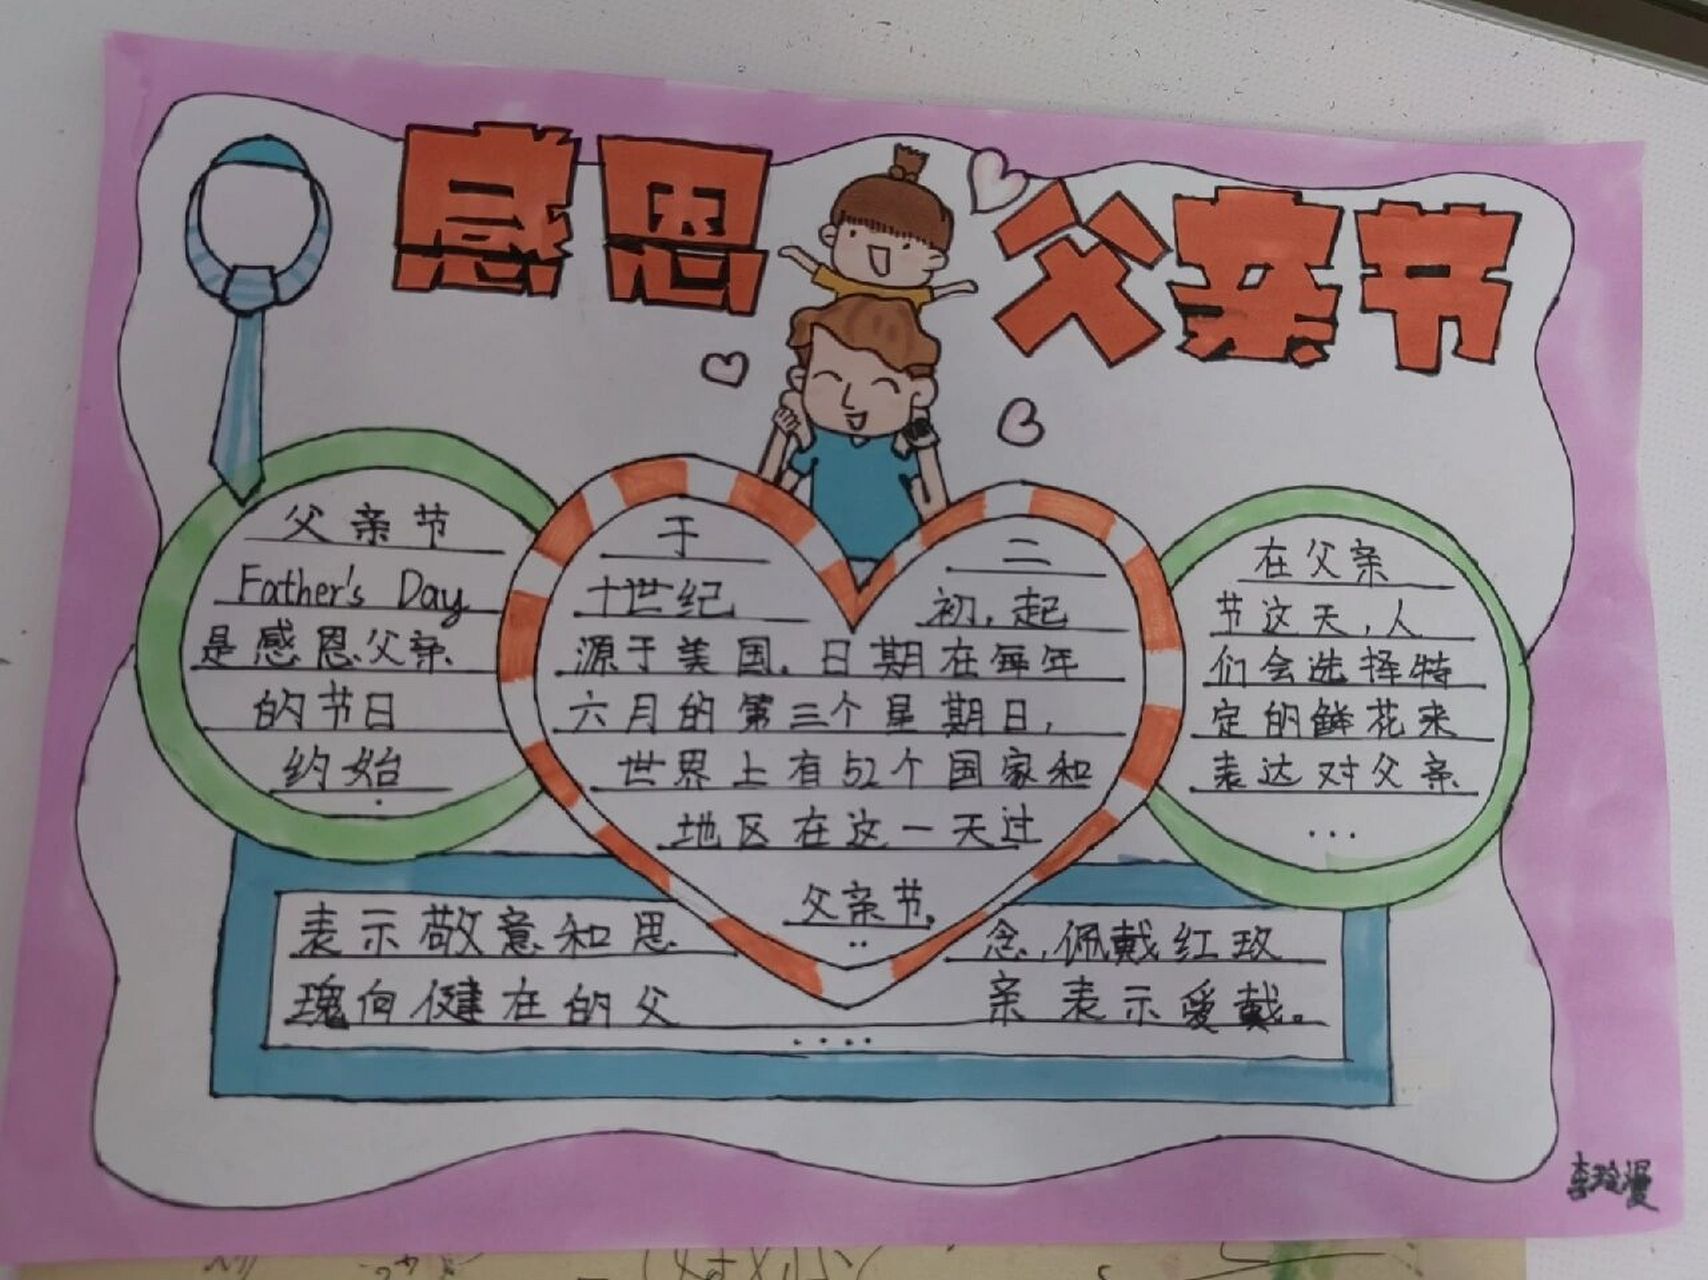 感恩父亲节
父亲节
Father's Day
是感恩父亲
的节日
约始
于 二
十世纪 初,起
源于美国。日期在每年
六月的第三个星期日,
世界上有52个国家和
地区在这一天过
父亲节。
在父亲
节这天,人
们会选择特
定的鲜花来
表达对父亲
...
表示敬意和思 念,佩戴红玫
瑰向健在的父 亲表示爱戴。
....